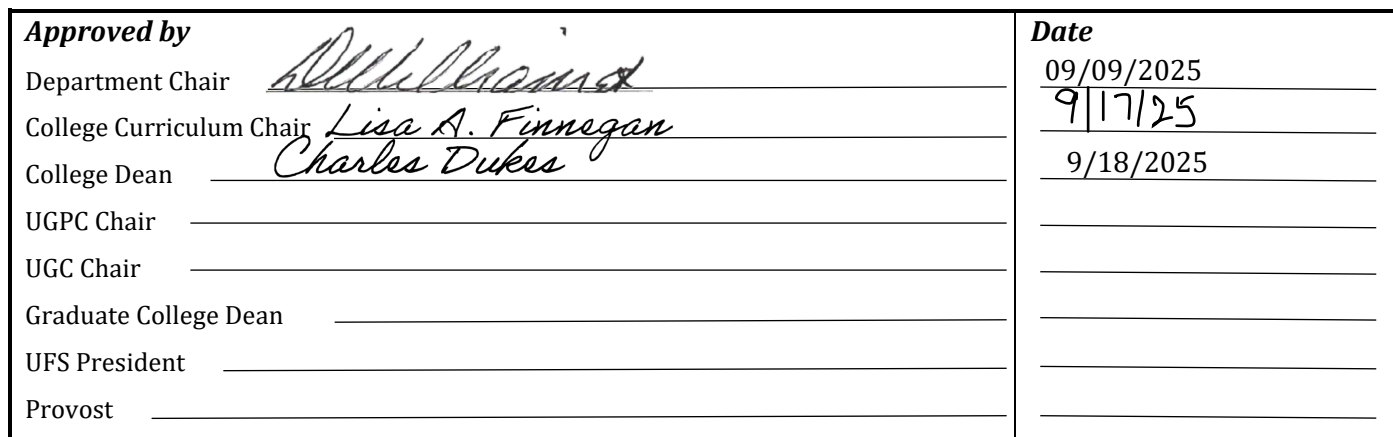 Approved by Date
Department Chair 09/09/2025
College Curriculum Chair Lisa A. Finnegan 9/17/25
College Dean Charles Dukes 9/18/2025
UGPC Chair
UGC Chair
Graduate College Dean
UFS President
Provost